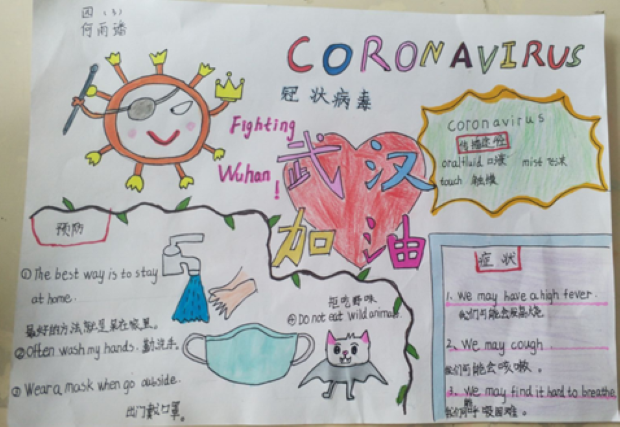 四（3）
何雨璠
CORONAVIRUS
冠状病毒
Fighting
Wuhan!
武汉
加油
coronavirus
传播途径
oral fluid 口液 mist 飞沫
touch 触摸
预防
①The best way is to stay
at home.
最好的方法就是呆在家里。
②Often wash my hands. 勤洗手。
③Wear a mask when go outside.
出门戴口罩。
拒吃野味
④Do not eat wild animals.
症状
1. We may have a high fever.
我们可能会发高烧.
2. We may cough.
我们可能会咳嗽。
3. We may find it hard to breathe
我们可能呼吸困难。